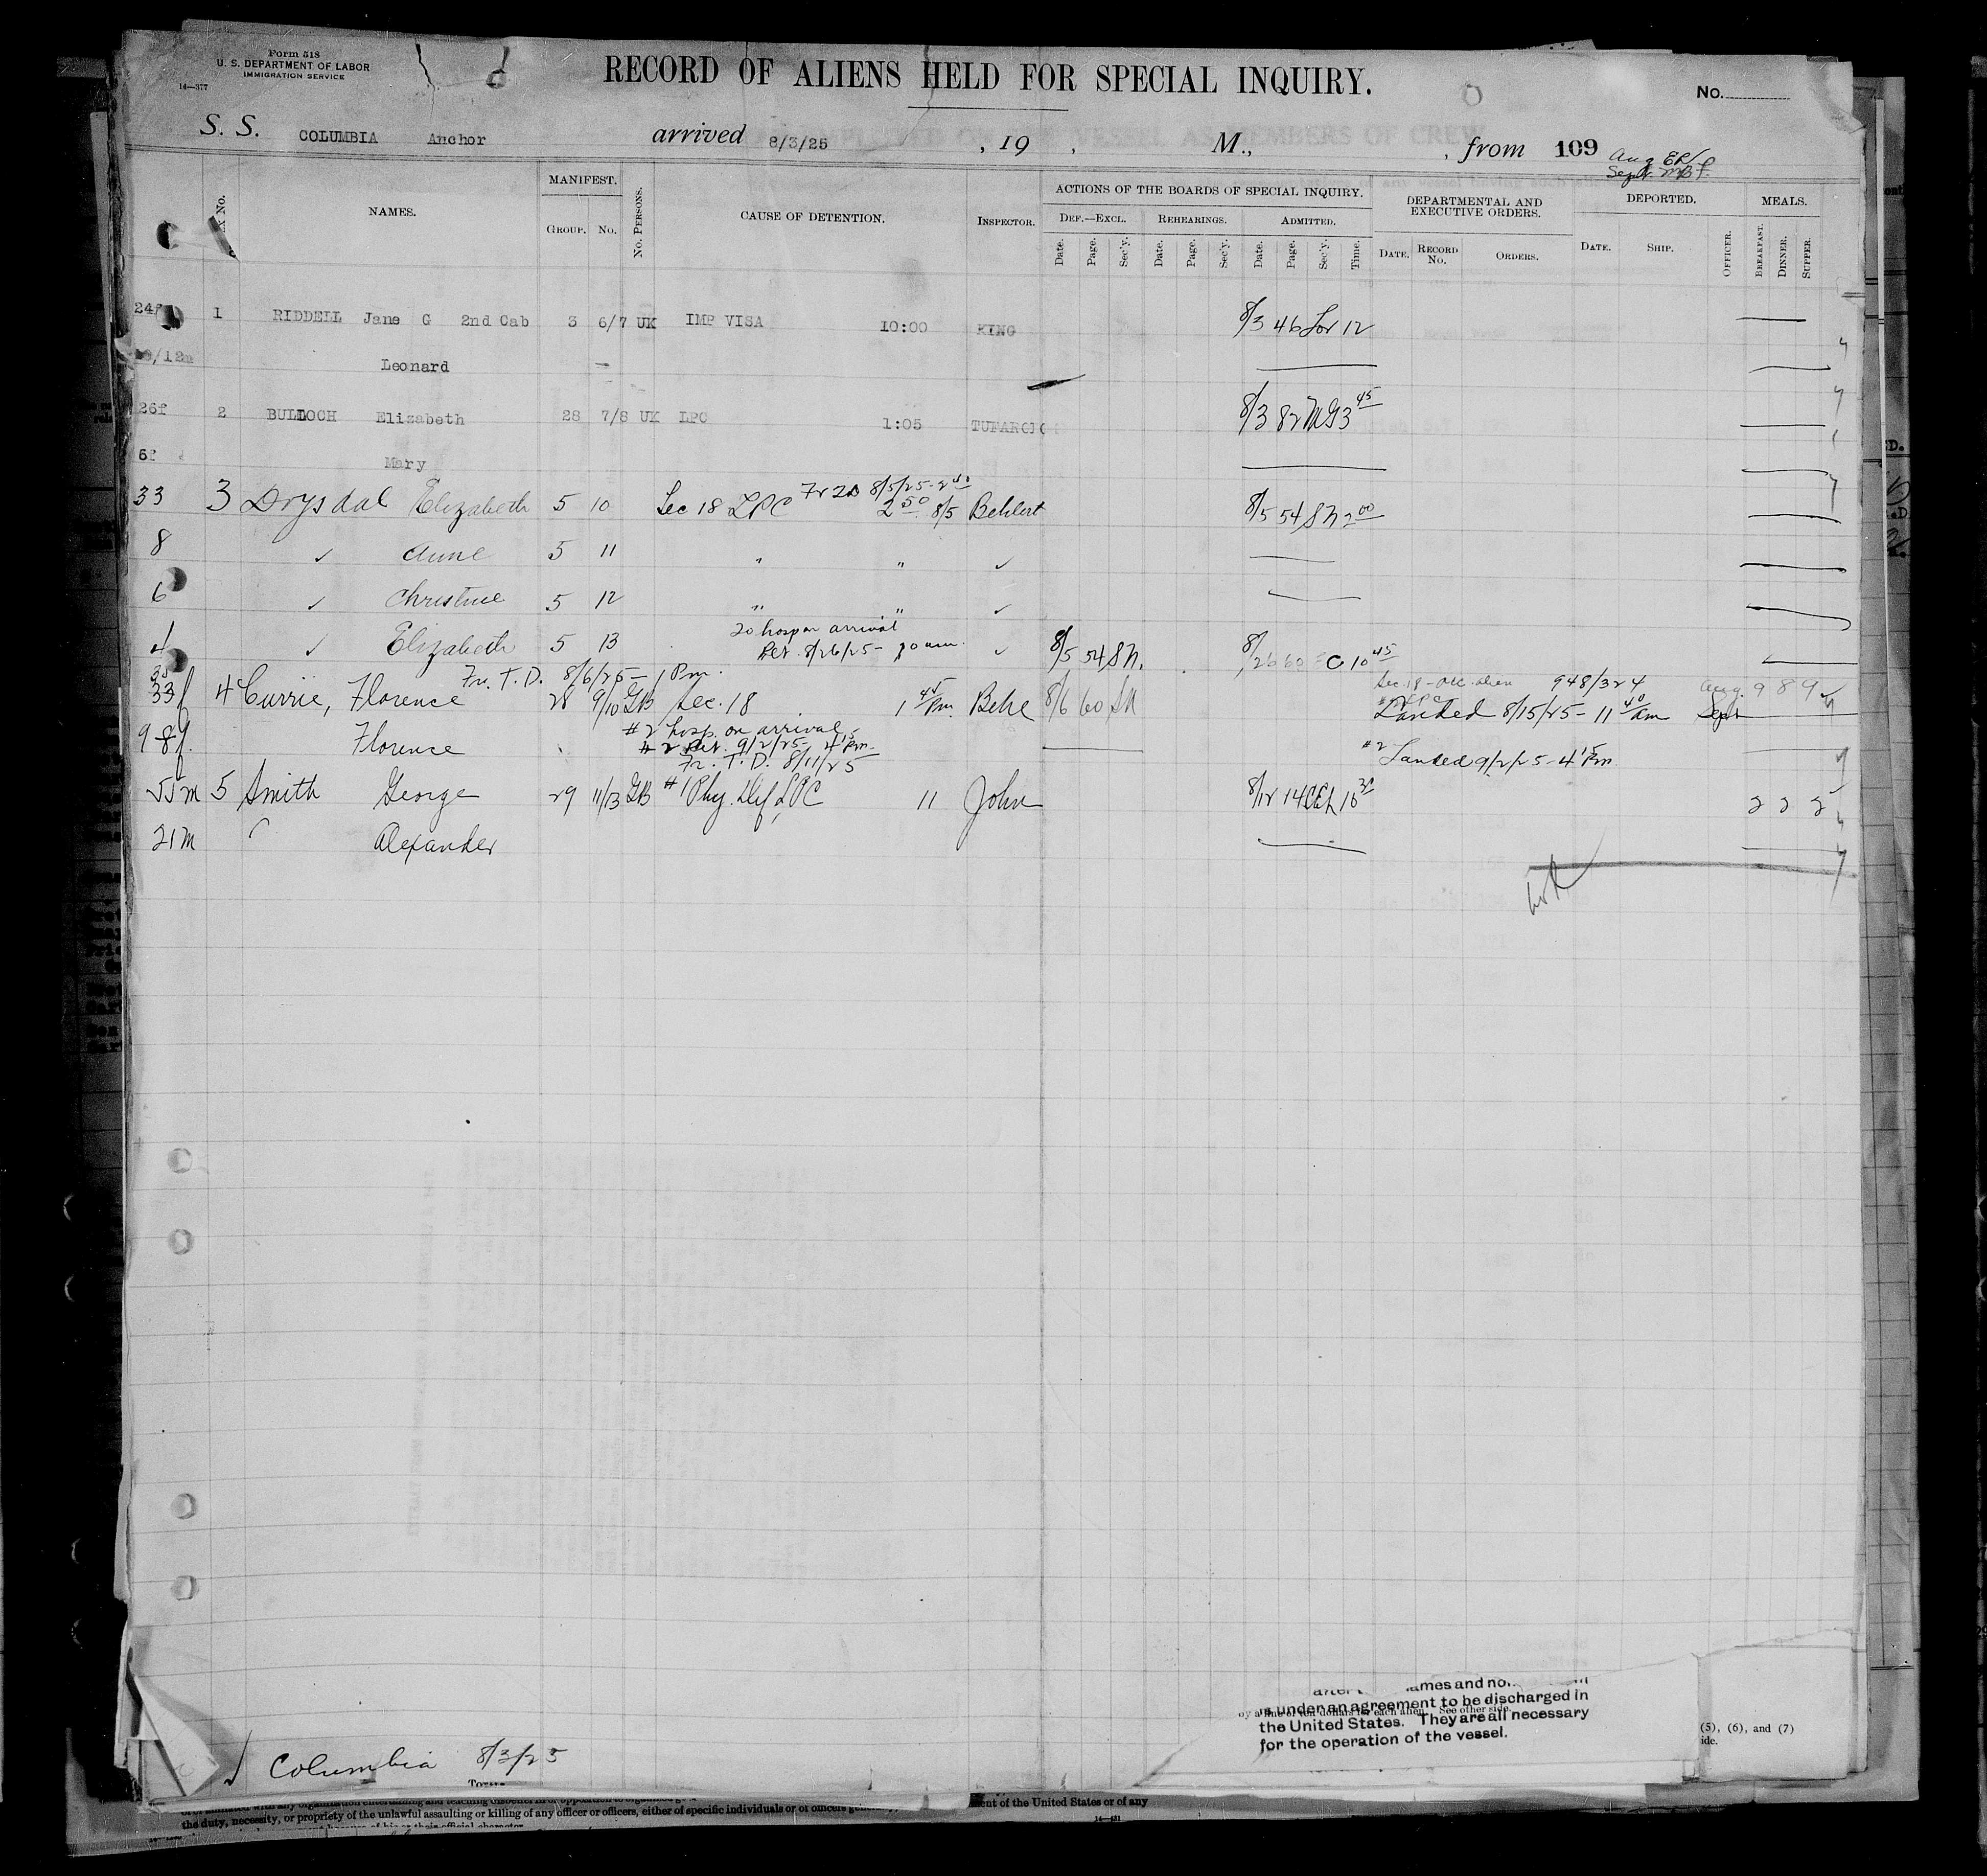 Form 518
U. S. DEPARTMENT OF LABOR
IMMIGRATION SERVICE
14—377
RECORD OF ALIENS HELD FOR SPECIAL INQUIRY.
No.
S. S. COLUMBIA Anchor arrived 8/3/25 , 19 , M., , from 109 Aug
Sept.
No. NAMES. MANIFEST. GROUP. No. No. PERSONS. CAUSE OF DETENTION. INSPECTOR. ACTIONS OF THE BOARDS OF SPECIAL INQUIRY. DEF.—EXCL. Date. Page. Sec'y. REHEARINGS. Date. Page. Sec'y. ADMITTED. Date. Page. Sec'y. Time. DEPARTMENTAL AND EXECUTIVE ORDERS. DATE. RECORD No. ORDERS. DEPORTED. DATE. SHIP. OFFICER. MEALS. BREAKFAST. DINNER. SUPPER.
24f 1 RIDDELL Jane G 2nd Cab 3 6/7 UK IMP VISA 10:00 KING 8/3 46 Lor 12
/12m Leonard
26f 2 BULLOCH Elizabeth 28 7/8 UK LPC 1:05 8/3 82 MG 3 45
5f Mary
33 3 Drysdal Elizabeth 5 10 Sec 18 LPC 8/5/25 - 2 40 2 50 8/5 Behlert 8/5 54 SN 2 00
8 ✓ Anne 5 11 " " ✓
6 ✓ Christine 5 12 " " ✓
4 ✓ Elizabeth 5 13 To hosp on arrival
Ret. 8/26/25 - 10 am. ✓ 8/5 54 SN. 8/26 60 10 45
Fr. T. D. 8/6/25 - 1 Pm.
33f 4 Currie, Florence 28 9/10 GB Sec. 18 1 45 Pm. Behe 8/6 60 SN Sec. 18 - 948/324 Aug. 9 8 9
Landed 8/15/25 - 11 40 am Sept
9-8f. Florence #2 hosp. on arrival
#2 Ret. 9/2/25 - 4 15 Pm. #2 Landed 9/2/25 - 4 15 Pm.
Fr. T. D. 8/11/25
55m 5 Smith George 29 11/13 GB #1 Phy. Def LPC 11 John 8/12 14 10 30 2 2 2
21m " Alexander
ames and no
is under an agreement to be discharged in
by a fine of ten dollars for each alien. See other side.
the United States. They are all necessary
for the operation of the vessel.
(5), (6), and (7)
ide.
Columbia 8/3/25
ent of the United States or of any
the duty, necessity, or propriety of the unlawful assaulting or killing of any officer or officers, either of specific individuals or of officers
14—431